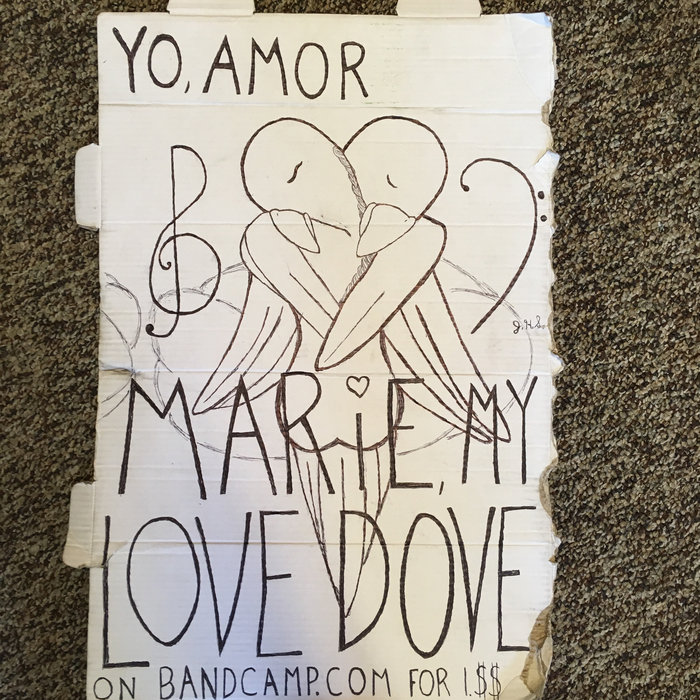 YO, AMOR
J.H.S.
MARiE, MY
LOVE DOVE
ON BANDCAMP.COM FOR 1.$$